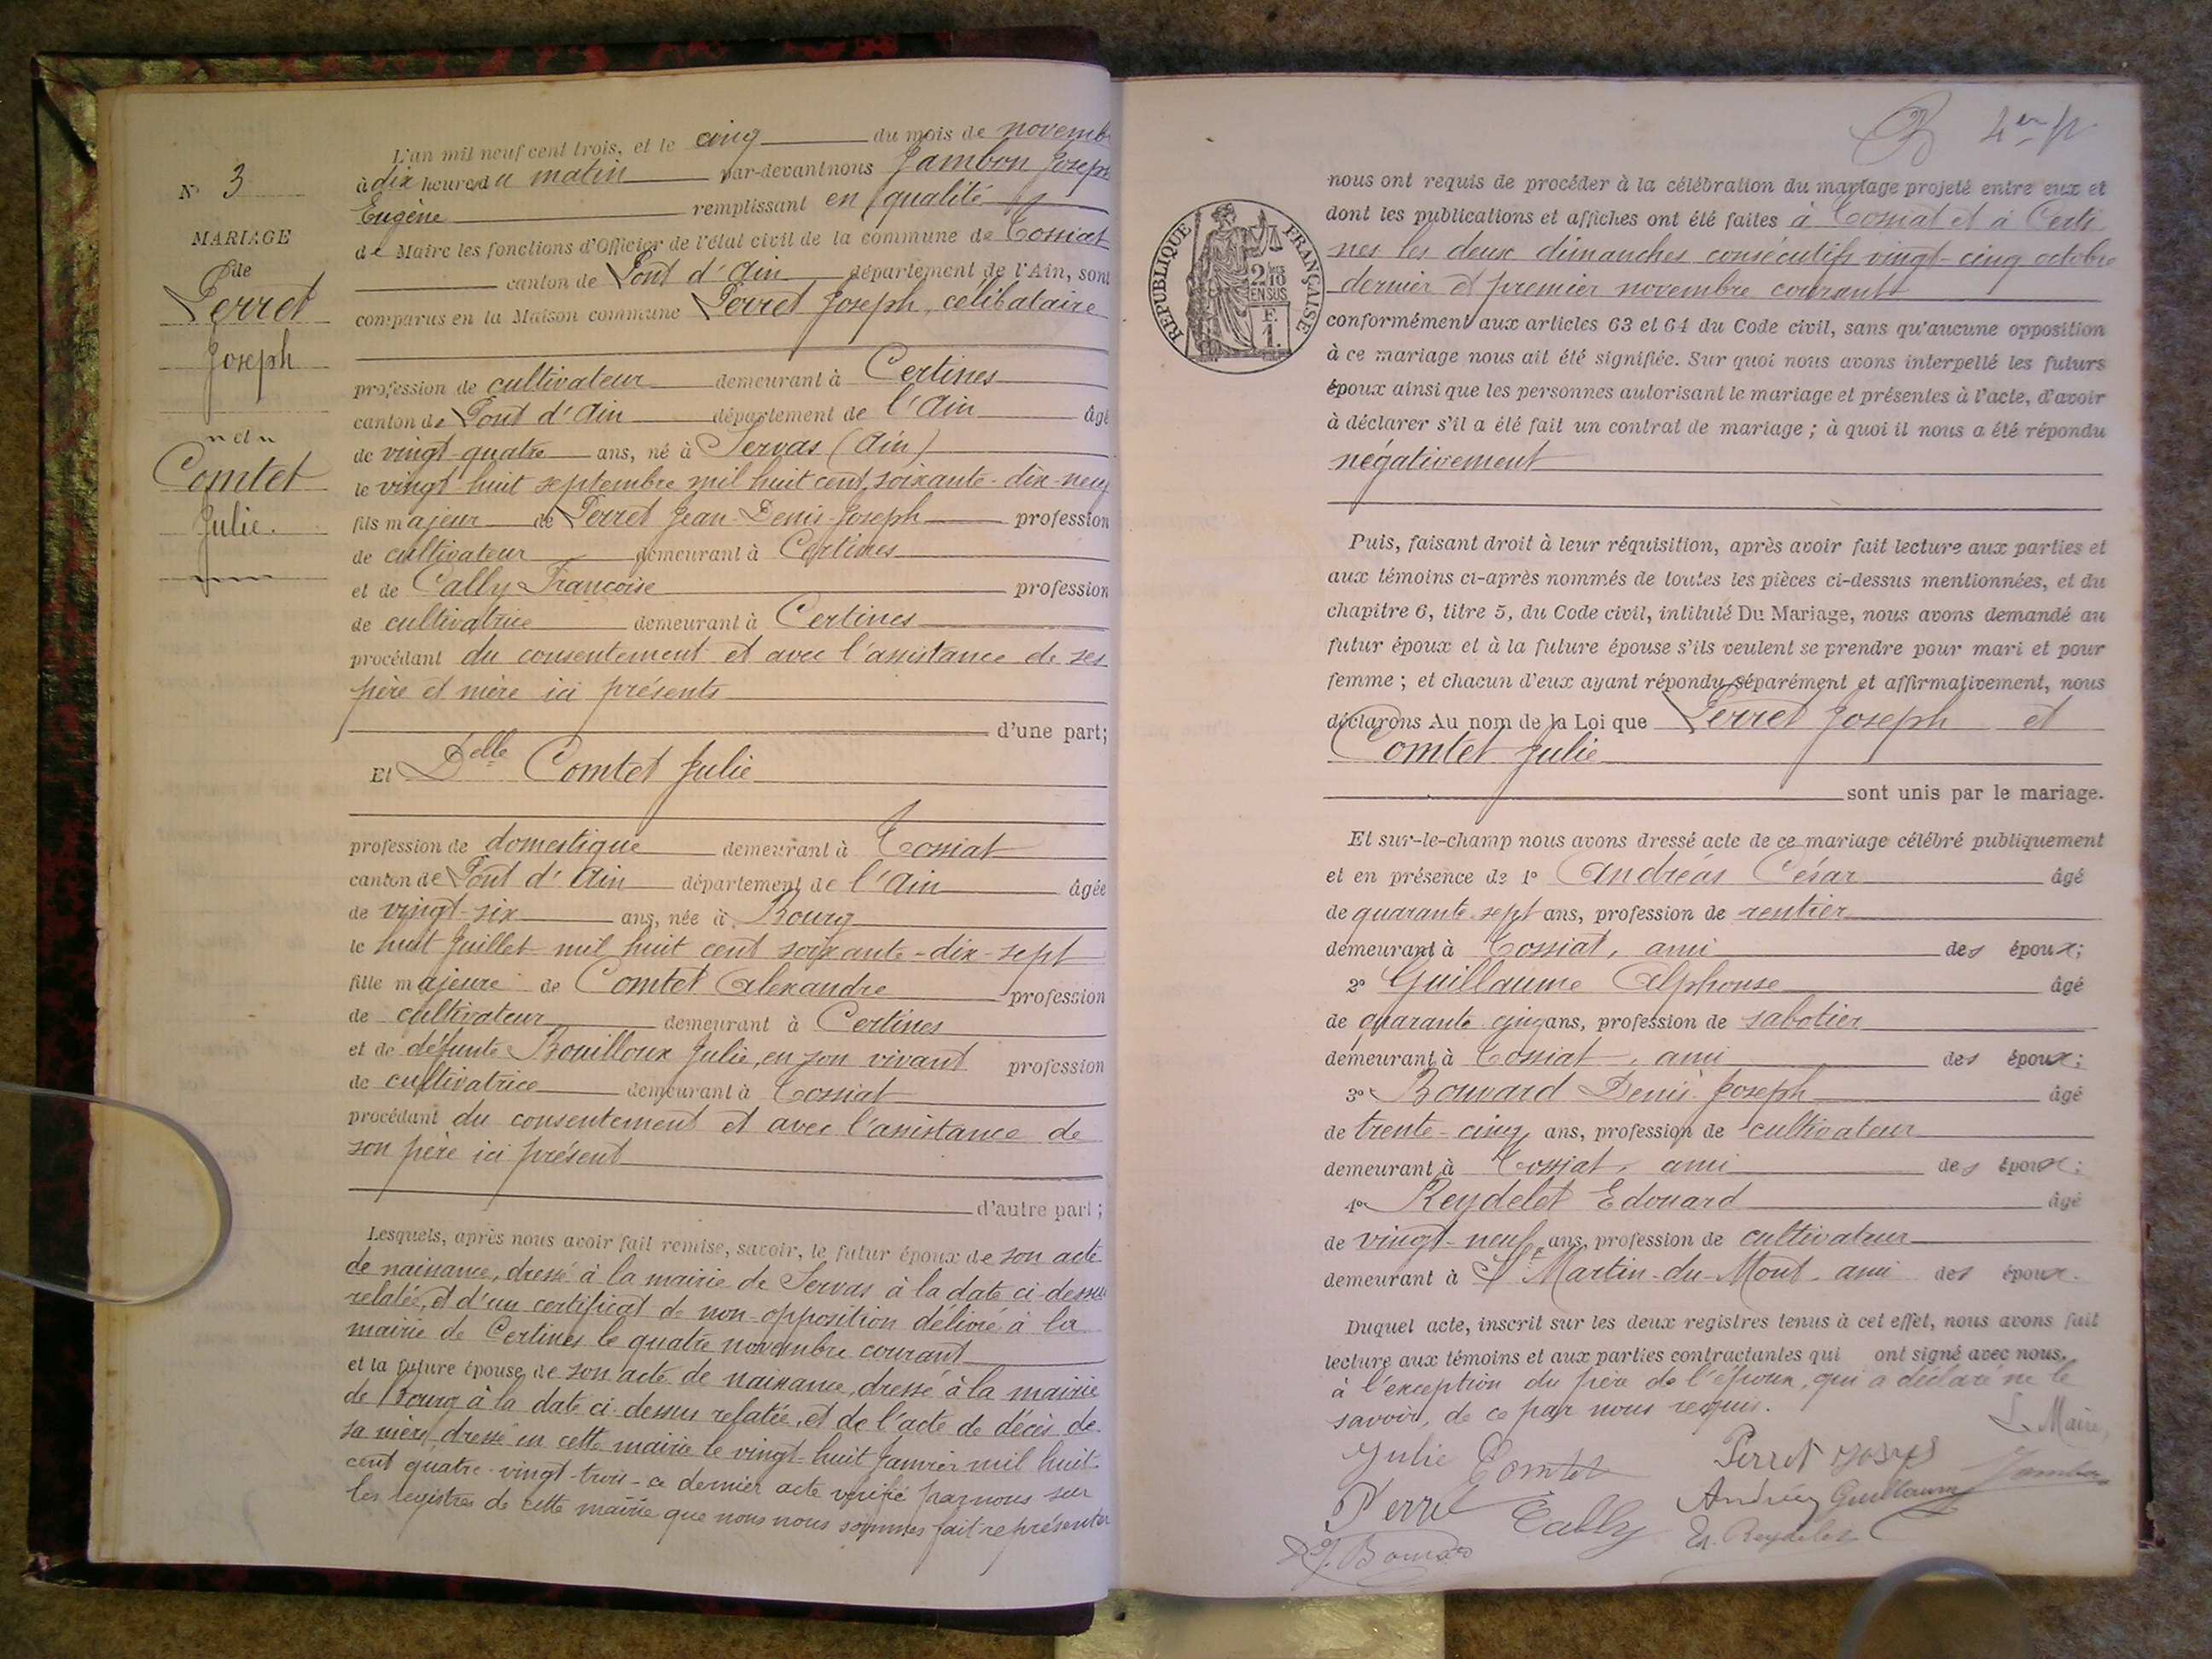 N° 3
MARIAGE
de
Perret
Joseph
et
Comtet
Julie.
L'an mil neuf cent trois, et le cinq du mois de novemb
à dix heures du matin par-devant nous Jambon Joseph
Eugène remplissant en qualité
de Maire les fonctions d'Officier de l'état civil de la commune de Tossiat
canton de Pont d'Ain département de l'Ain, sont
comparus en la Maison commune Perret Joseph, célibataire
profession de cultivateur demeurant à Certines
canton de Pont d'Ain département de l'Ain âgé
de vingt-quatre ans, né à Servas (Ain)
le vingt-huit septembre mil huit cent soixante-dix-neuf
fils majeur de Perret Jean-Denis-Joseph profession
de cultivateur demeurant à Certines
et de Cally Françoise profession
de cultivatrice demeurant à Certines
procédant du consentement et avec l'assistance de ses
père et mère ici présents
d'une part;
Et Delle Comtet Julie
profession de domestique demeurant à Tossiat
canton de Pont d'Ain département de l'Ain âgée
de vingt-six ans, née à Bourg
le huit Juillet mil huit cent soixante-dix-sept
fille majeure de Comtet Alexandre profession
de cultivateur demeurant à Certines
et de défunte Bouilloux Julie, en son vivant profession
de cultivatrice demeurant à Tossiat
procédant du consentement et avec l'assistance de
son père ici présent
d'autre part;
Lesquels, après nous avoir fait remise, savoir, le futur époux de son acte
de naissance, dressé à la mairie de Servas à la date ci-dessus
relatée, et d'un certificat de non-opposition délivré à la
mairie de Certines le quatre novembre courant
et la future épouse, de son acte de naissance, dressé à la mairie
de Bourg à la date ci-dessus relatée, et de l'acte de décès de
sa mère, dressé en cette mairie le vingt-huit Janvier mil huit
cent quatre-vingt-trois - ce dernier acte vérifié par nous sur
les registres de cette mairie que nous nous sommes fait représenter
nous ont requis de procéder à la célébration du mariage projeté entre eux et
dont les publications et affiches ont été faites à Tossiat et à Certi
nes les deux dimanches consécutifs vingt-cinq octobre
dernier et premier novembre courant
RÉPUBLIQUE FRANÇAISE
2 10 EN SUS
F. 1.
conformément aux articles 63 et 64 du Code civil, sans qu'aucune opposition
à ce mariage nous ait été signifiée. Sur quoi nous avons interpellé les futurs
époux ainsi que les personnes autorisant le mariage et présentes à l'acte, d'avoir
à déclarer s'il a été fait un contrat de mariage ; à quoi il nous a été répondu
négativement
Puis, faisant droit à leur réquisition, après avoir fait lecture aux parties et
aux témoins ci-après nommés de toutes les pièces ci-dessus mentionnées, et du
chapitre 6, titre 5, du Code civil, intitulé Du Mariage, nous avons demandé au
futur époux et à la future épouse s'ils veulent se prendre pour mari et pour
femme ; et chacun d'eux ayant répondu séparément et affirmativement, nous
déclarons Au nom de la Loi que Perret Joseph et
Comtet Julie
sont unis par le mariage.
Et sur-le-champ nous avons dressé acte de ce mariage célébré publiquement
et en présence de 1° Andréas César âgé
de quarante-sept ans, profession de rentier
demeurant à Tossiat, ami des époux;
2° Guillaume Alphonse âgé
de quarante cinq ans, profession de sabotier
demeurant à Tossiat, ami des époux;
3° Bouvard Denis-Joseph âgé
de trente-cinq ans, profession de cultivateur
demeurant à Tossiat, ami des époux;
4° Reydelet Edouard âgé
de vingt-neuf ans, profession de cultivateur
demeurant à St Martin-du-Mont, ami des époux.
Duquel acte, inscrit sur les deux registres tenus à cet effet, nous avons fait
lecture aux témoins et aux parties contractantes qui ont signé avec nous,
à l'exception du père de l'époux, qui a déclaré ne le
savoir, de ce par nous requis.
Le Maire,
Julie Comtet Perret Joseph
Jambon
Perret Cally Guillaume
J. Bouvard Ed. Reydelet